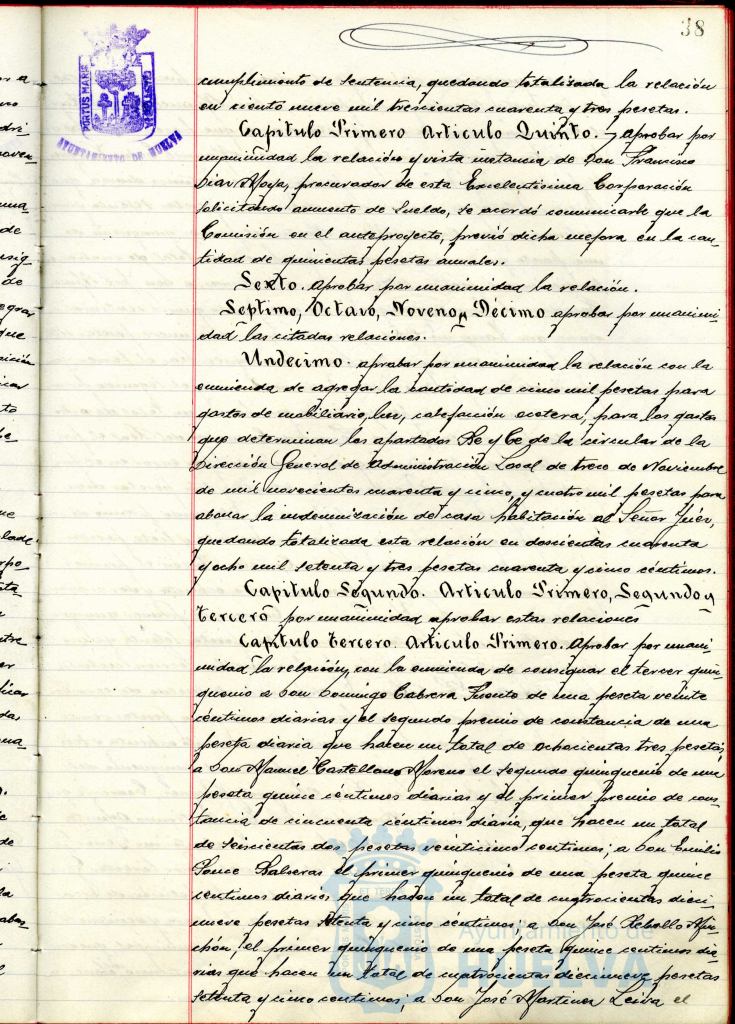 38
PORTUS MARIS
CUSTODIA
AYUNTAMIENTO DE HUELVA
cumplimiento de sentencia, quedando totalizada la relación
en ciento nueve mil trescientas cuarenta y tres pesetas.
Capitulo Primero Articulo Quinto. Aprobar por
unanimidad la relación y vista instancia de Don Francisco
Diaz Moya, procurador de esta Excelentisima Corporación
solicitando aumento de sueldo, se acordó comunicarle que la
Comisión en el anteproyecto, previó dicha mejora en la can-
tidad de quinientas pesetas anuales.
Sexto. Aprobar por unanimidad la relación.
Septimo, Octavo, Noveno y Décimo aprobar por unanimi-
dad las citadas relaciones.
Undecimo. aprobar por unanimidad la relación con la
enmienda de agregar la cantidad de cinco mil pesetas para
gastos de mobiliario, luz, calefacción ecetera, para los gastos
que determinan los apartados Be y Ce de la circular de la
Dirección General de Administración Local de trece de Noviembre
de mil novecientos cuarenta y cinco, y cuatro mil pesetas para
abonar la indemnización de casa habitación al Señor
quedando totalizada esta relación en doscientas cuarenta
y ocho mil setenta y tres pesetas cuarenta y cinco céntimos.
Capitulo Segundo. Articulo Primero, Segundo y
Tercero por unanimidad aprobar estas relaciones
Capitulo tercero. Articulo Primero. Aprobar por unani-
midad la relación, con la enmienda de consignar el tercer quin-
quenio a Don Domingo Cabrera de una peseta veinte
céntimos diarias y el segundo premio de constancia de una
peseta diaria que hacen un total de ochocientas tres pesetas,
a Don Manuel Castellano Moreno el segundo quinquenio de una
peseta quince céntimos diarias y el primer premio de cons-
tancia de cincuenta céntimos diaria, que hacen un total
de seiscientas dos pesetas veinticinco centimos; a Don Emilio
Ponce Balseras el primer quinquenio de una peseta quince
centimos diarias que hacen un total de cuatrocientas dieci-
nueve pesetas setenta y cinco céntimos a Don José Rebollo
el primer quinquenio de una peseta quince centimos dia-
rias que hacen un total de cuatrocientas diecinueve pesetas
setenta y cinco centimos, a Don José Martinez Leiva el
Ayuntamiento de
HUELVA